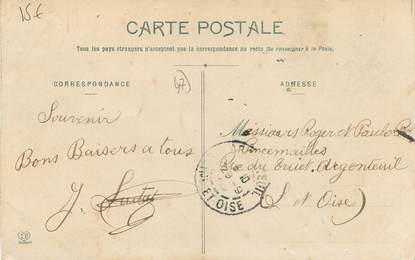 15€
CARTE POSTALE
Tous les pays étrangers n'acceptent pas la correspondance au recto (Se renseigner à la Poste).
CORRESPONDANCE
67
ADRESSE
Souvenir
Bons Baisers a tous
J.
Messieurs Roger et Paul
Rue du Argenteuil
(S et Oise)
ET OISE